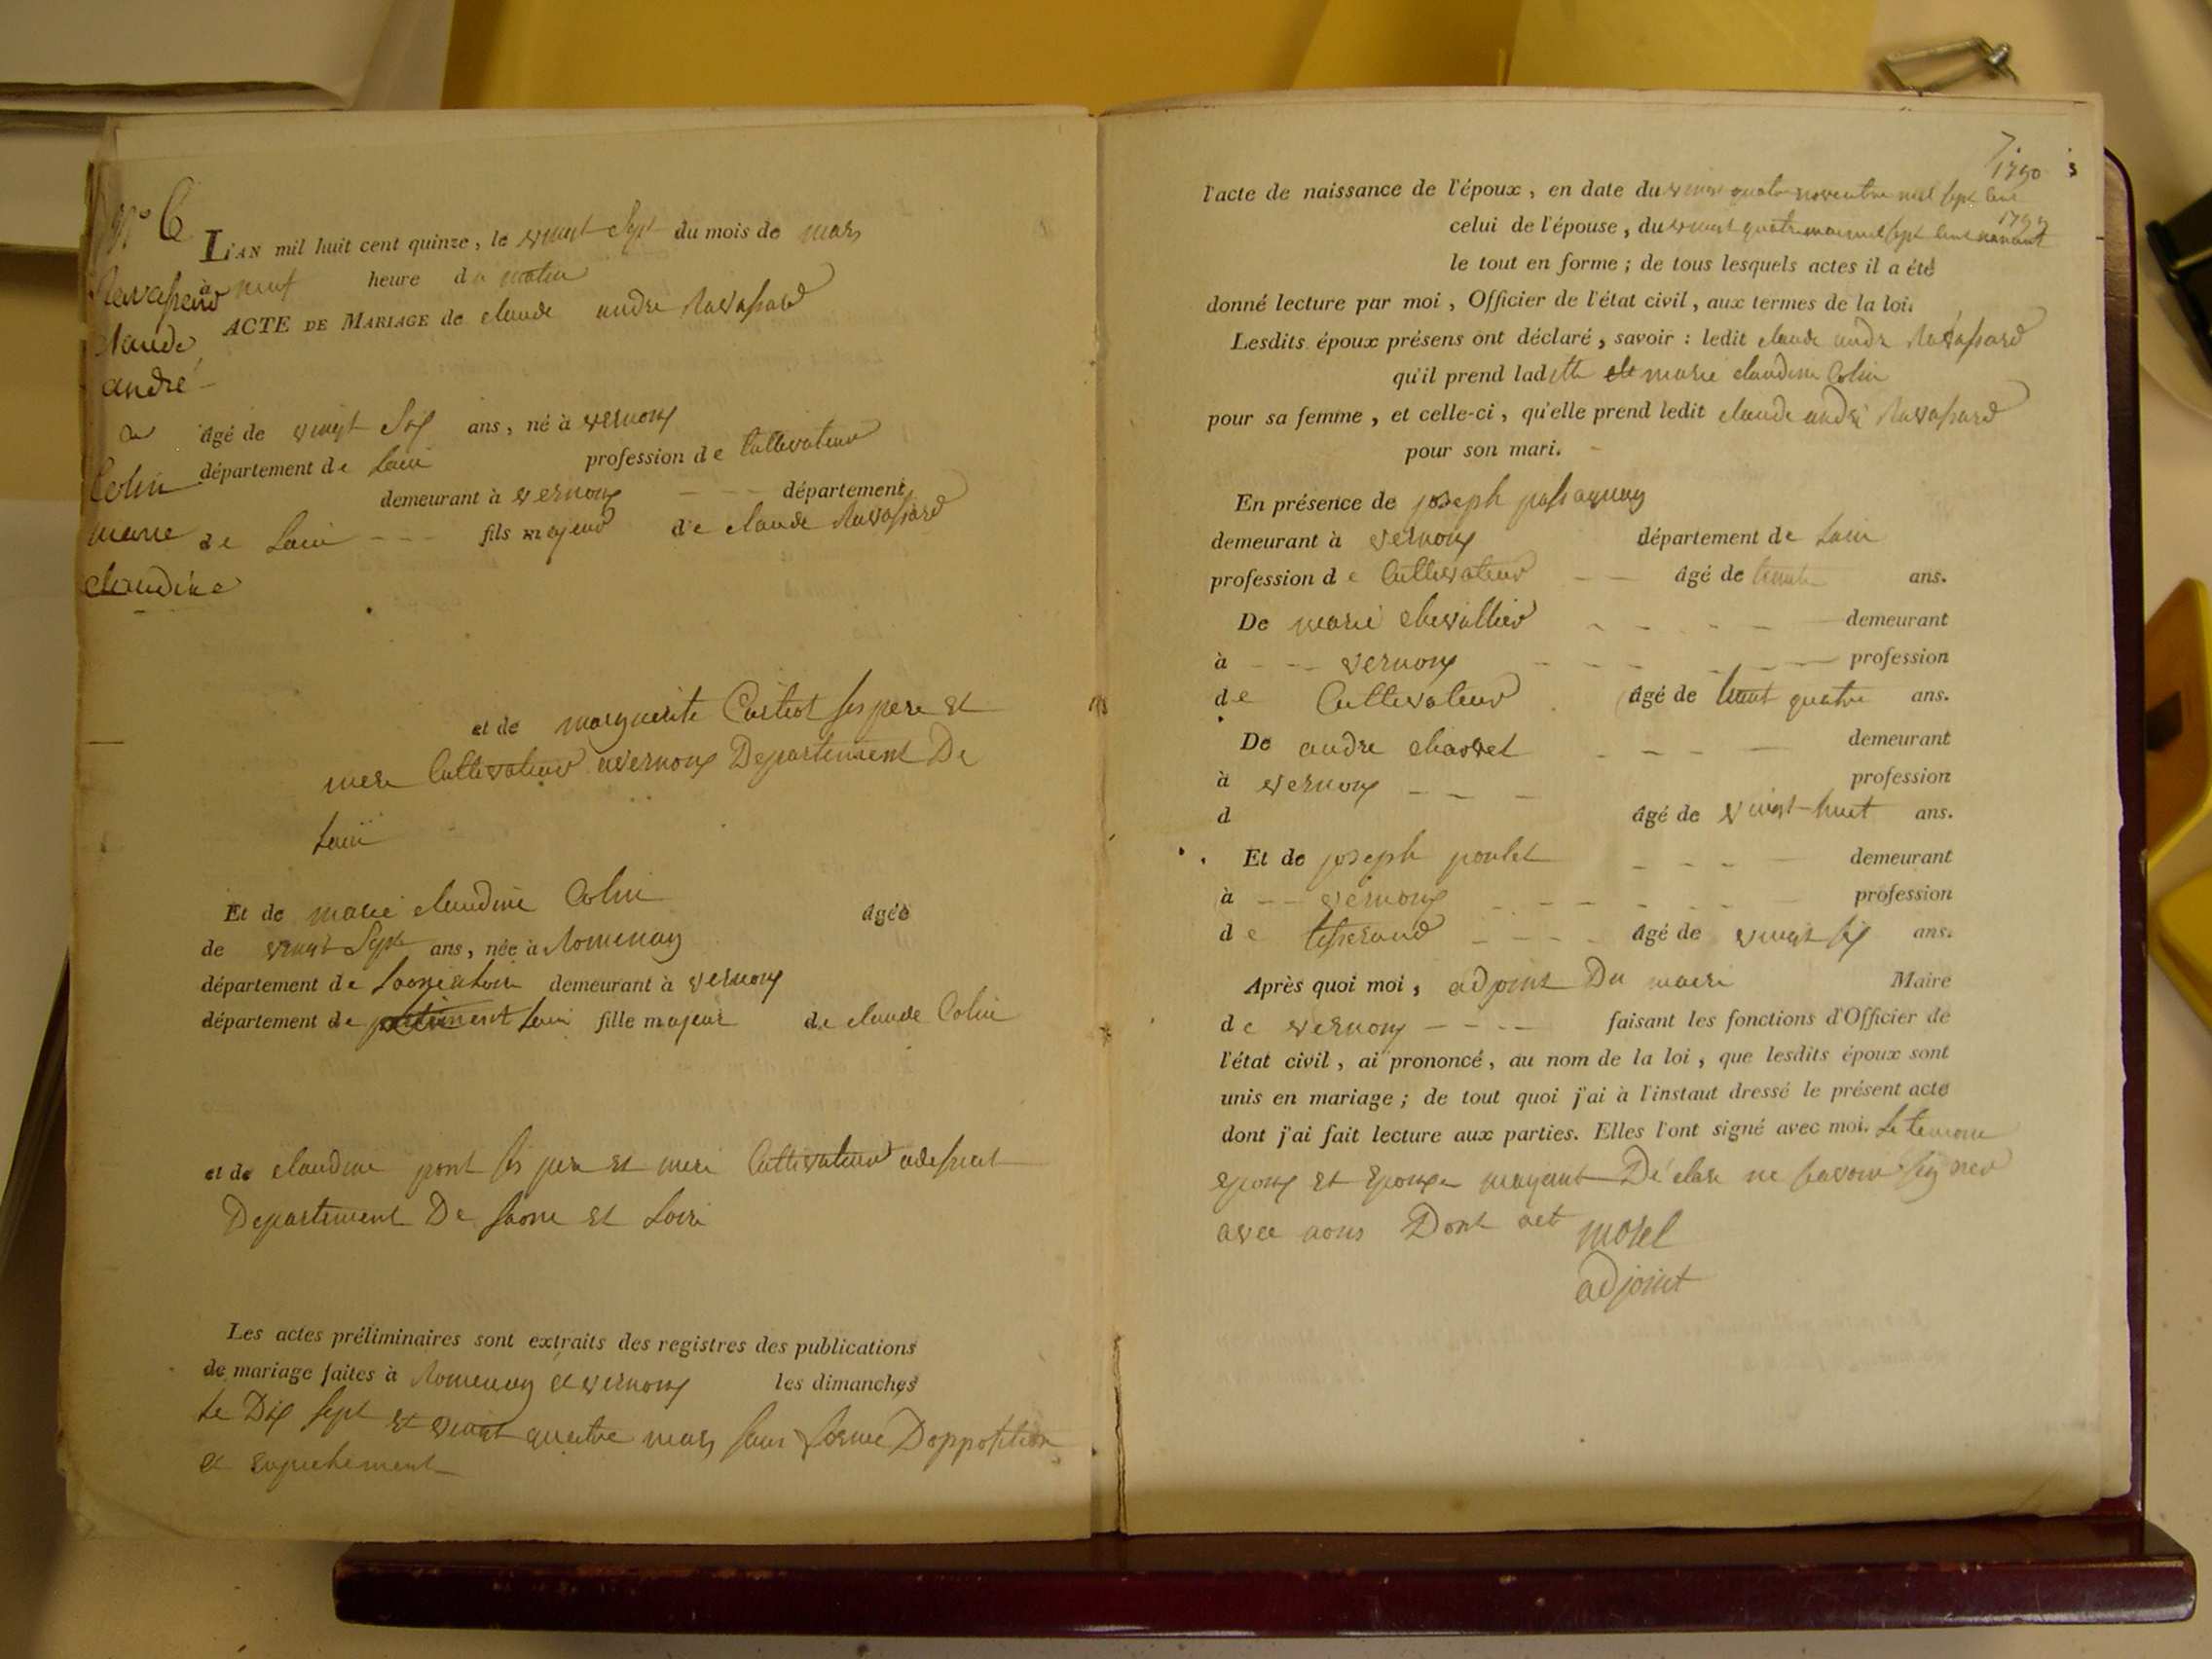 N° 6
Ravassard
claude
andré
a
Colin
marie
claudine
L'AN mil huit cent quinze, le vingt sept du mois de mars
à neuf heure du matin
ACTE DE MARIAGE de claude andre Ravassard
âgé de vingt six ans, né à vernoux
département de Lain profession de Cultivateur
demeurant à vernoux département
de Lain fils majeur de claude Ravassard
et de marguerite ses pere et
mere Cultivateur a vernoux Departement De
Lain
Et de marie claudine Colin âgée
de vingt Sept ans, née à Romenay
département de Saone et Loire demeurant à vernoux
département de Lain fille majeur de claude Colin
et de claudine pont ses pere et mere Cultivateur
Departement De Saone et Loire
Les actes préliminaires sont extraits des registres des publications
de mariage faites à Romenay et vernoux les dimanches
Le Dix sept et vingt quatre mars sans Dopposition
et enpechement
1790
l'acte de naissance de l'époux, en date du vingt quatre novembre mil sept cent
celui de l'épouse, du vingt quatre mai mil sept cent
le tout en forme; de tous lesquels actes il a été
donné lecture par moi, Officier de l'état civil, aux termes de la loi.
Lesdits époux présens ont déclaré, savoir : ledit claude andre Ravassard
qu'il prend ladite marie claudine Colin
pour sa femme, et celle-ci, qu'elle prend ledit claude andré Ravassard
pour son mari.
En présence de joseph passaquay
demeurant à vernoux département de Lain
profession de Cultivateur âgé de trente ans.
De marie chevallier demeurant
à vernoux profession
de Cultivateur âgé de trent quatre ans.
De andre demeurant
à vernoux profession
d âgé de vingt-huit ans.
Et de joseph poulet demeurant
à vernoux profession
de tisserand âgé de vingt six ans.
Après quoi moi, adjoint Du maire Maire
de vernoux faisant les fonctions d'Officier de
l'état civil, ai prononcé, au nom de la loi, que lesdits époux sont
unis en mariage; de tout quoi j'ai à l'instaut dressé le présent acte
dont j'ai fait lecture aux parties. Elles l'ont signé avec moi. Le temoin
epoux et Epouse mayant Déclare ne savoir signer
avec nous Dont act morel
adjoint